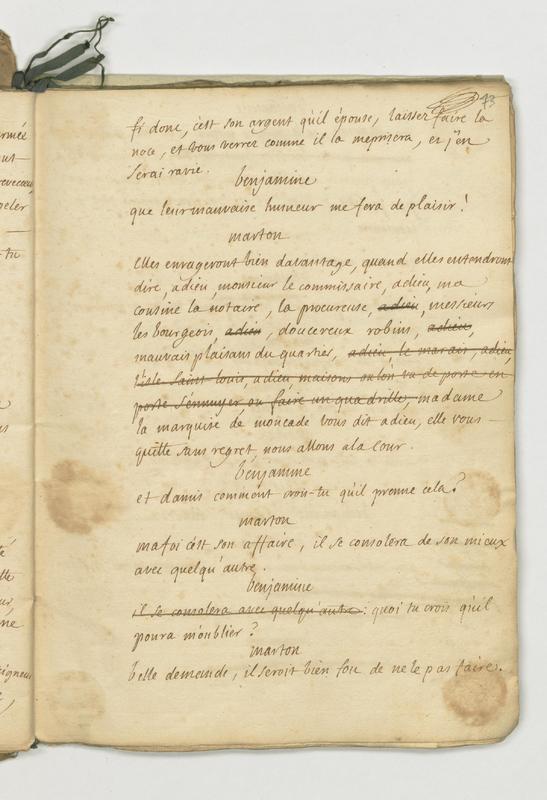 73
fi donc, c'est son argent qu'il épouse, laissez faire la
noce, et vous verrez comme il la meprisera, et j'en
serai ravie.
benjamine
que leur mauvaise humeur me fera de plaisir!
marton
elles enrageront bien davantage, quand elles entendront
dire, adieu, monsieur le commissaire, adieu, ma
cousine la notaire, la procureuse, adieu, messieurs
les bourgeois, adieu, doucereux robins, adieu,
mauvais plaisans du quartier, adieu, le marais, adieu,
l'isle saint louis, adieu maisons ou lon va de porte en
porte s'ennuyer ou faire un quadrille, madame
la marquise de moncade vous dit adieu, elle vous
quitte sans regret, nous allons a la cour.
benjamine
et damis comment crois-tu qu'il prenne cela?
marton
ma foi c'est son affaire, il se consolera de son mieux
avec quelqu'autre.
benjamine
il se consolera avec quelqu'autre: quoi tu crois qu'il
poura m'oublier?
marton
belle demande, il seroit bien fou de ne le pas faire.